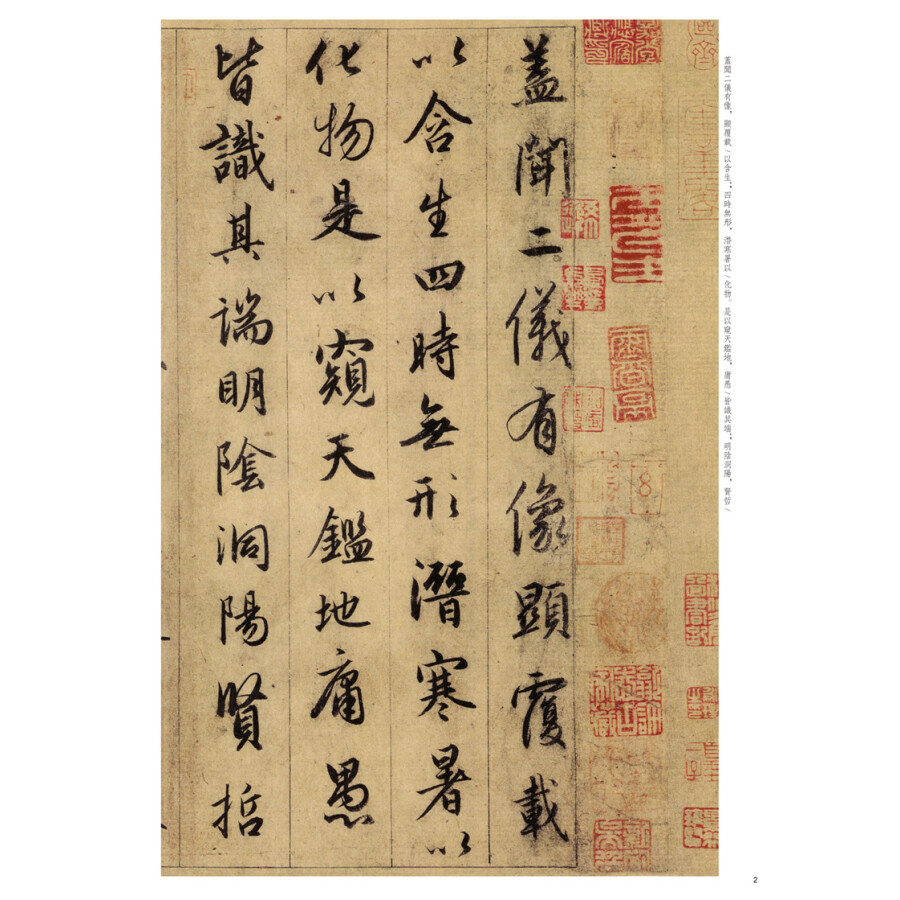 蓋聞二儀有像顯覆載
以含生四時無形潛寒暑以
化物是以窺天鑑地庸愚
皆識其端明陰洞陽賢哲
蓋聞二儀有像，顯覆載/以含生；四時無形，潛寒暑以/化物。是以窺天鑑地，庸愚/皆識其端；明陰洞陽，賢哲/
2